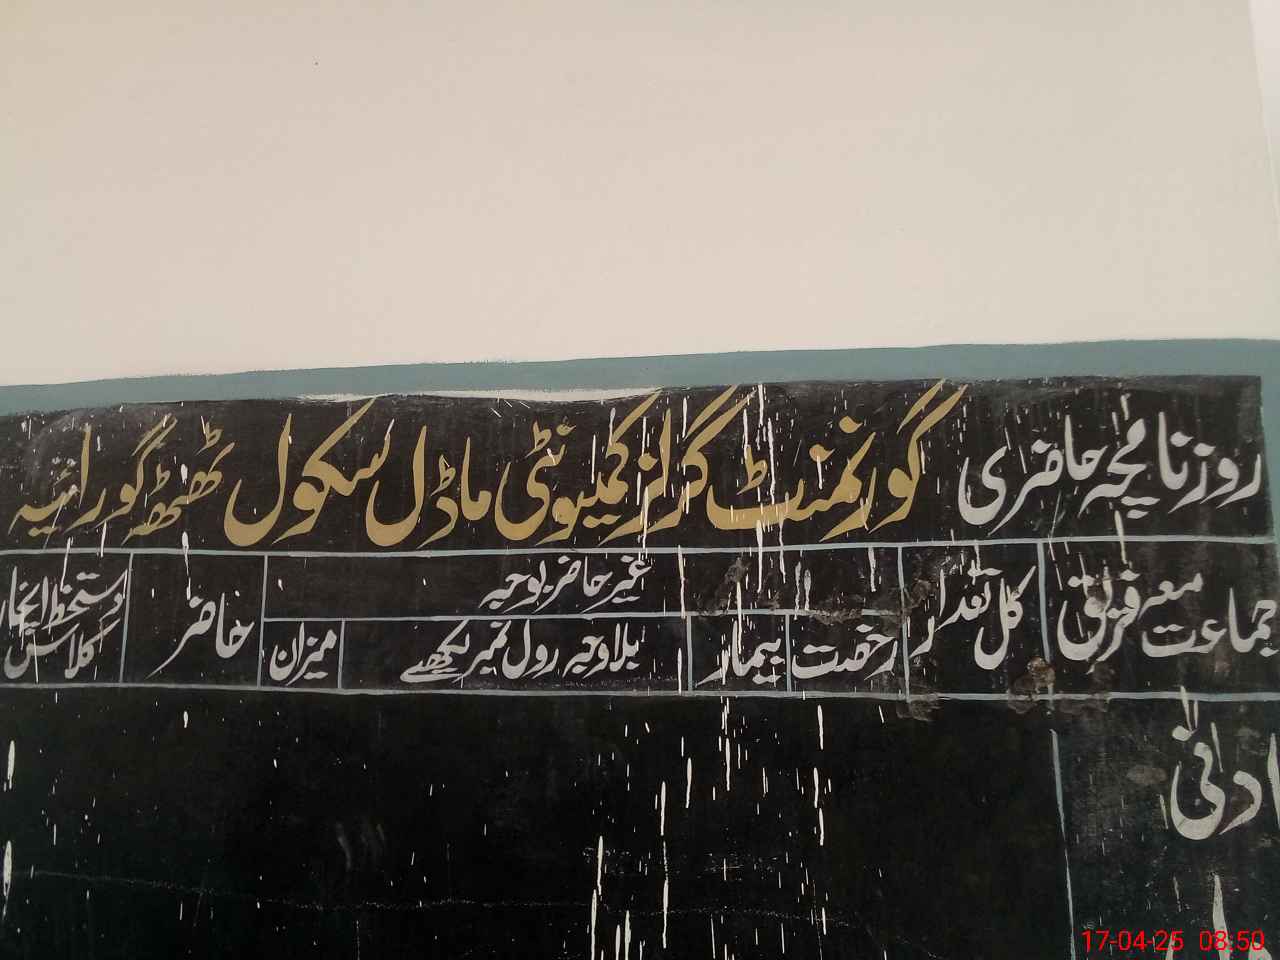 روزنامچہ حاضری گورنمنٹ گرلز کمیونٹی ماڈل سکول ٹھٹھ گورائیہ
جماعت معہ فریق کل تعداد رخصت بیمار غیر حاضر بوجہ بلاوجہ رول نمبر لکھیے میزان حاضر دستخط انچارج کلاس
ادنیٰ
17-04-25 08:50